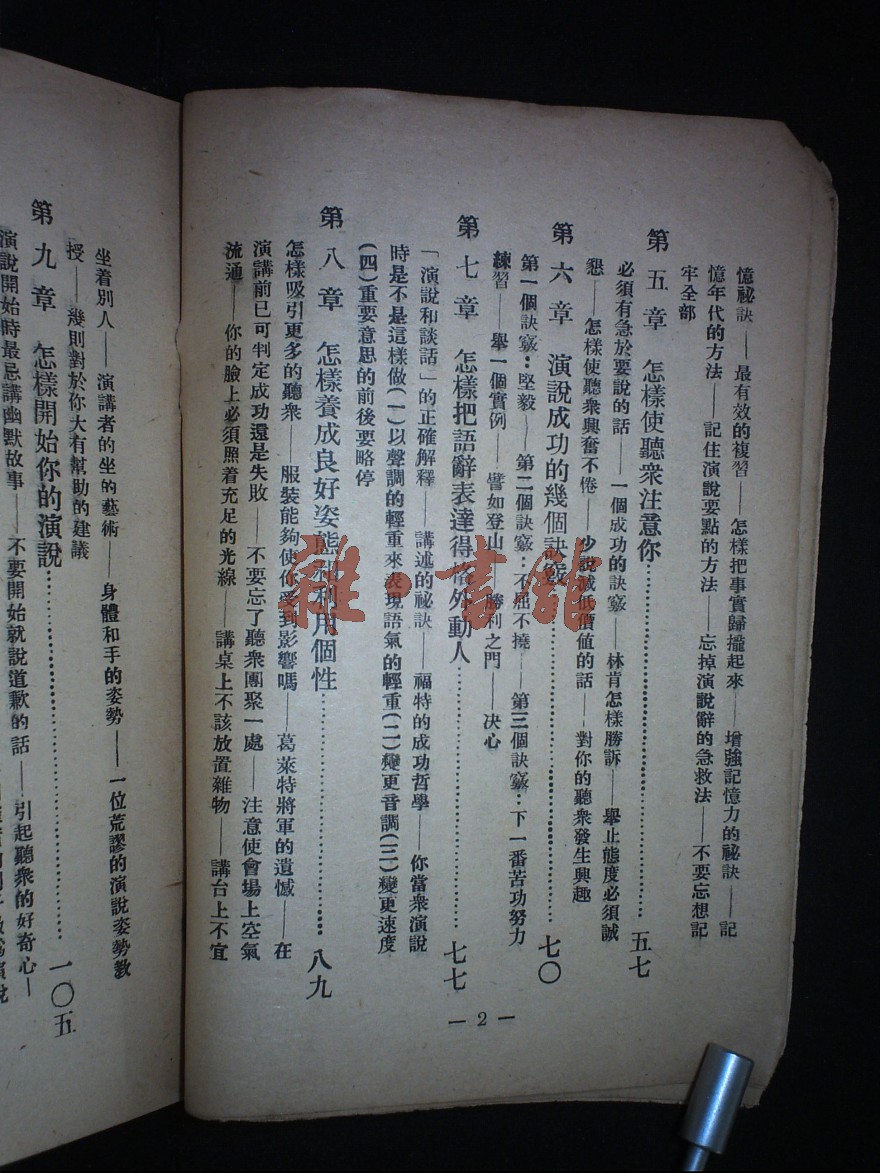 憶祕訣——最有效的複習——怎樣把事實歸攏起來——增強記憶力的祕訣——記
憶年代的方法——記住演說要點的方法——忘掉演說辭的急救法——不要忘想記
牢全部
第五章 怎樣使聽衆注意你…………五七
必須有急於要說的話——一個成功的訣竅——林肯怎樣勝訴——舉止態度必須誠
懇——怎樣使聽衆興奮不倦——少說減低價值的話——對你的聽衆發生興趣
第六章 演說成功的幾個訣竅…………七〇
第一個訣竅：堅毅——第二個訣竅：不屈不撓——第三個訣竅：下一番苦功努力
練習——舉一個實例——譬如登山——勝利之門——决心
第七章 怎樣把語辭表達得格外動人…………七七
「演說和談話」的正確解釋——講述的祕訣——福特的成功哲學——你當衆演說
時是不是這樣做(一)以聲調的輕重來表現語氣的輕重(二)變更音調(三)變更速度
(四)重要意思的前後要略停
第八章 怎樣養成良好姿態和利用個性…………八九
怎樣吸引更多的聽衆——服裝能夠使你受到影響嗎——葛萊特將軍的遺憾——在
演講前已可判定成功還是失敗——不要忘了聽衆團聚一處——注意使會場上空氣
流通——你的臉上必須照着充足的光線——講桌上不該放置雜物——講台上不宜
— 2 —
坐着別人——演講者的坐的藝術——身體和手的姿勢——一位荒謬的演說姿勢教
授——幾則對於你大有幫助的建議
第九章 怎樣開始你的演說…………一〇五
演說開始時最忌講幽默故事——不要開始就說道歉的話——引起聽衆的好奇心—
雜·書館